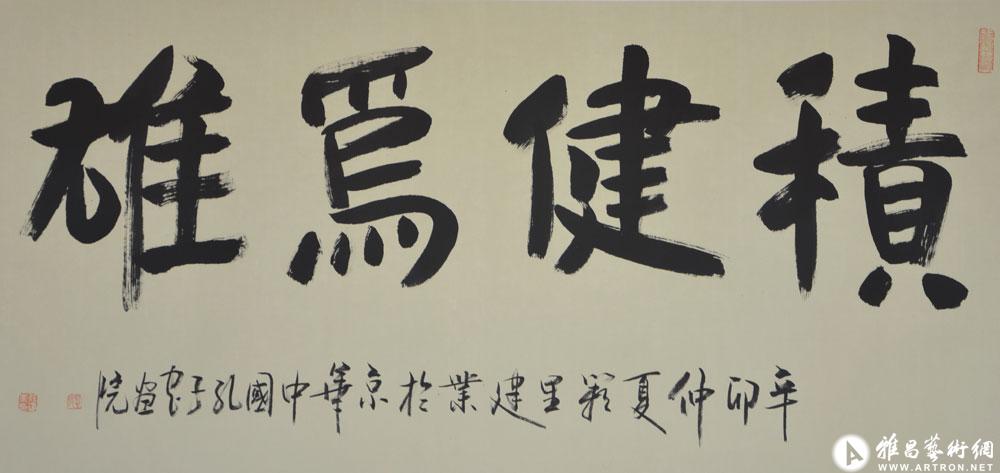 積健為雄
辛卯仲夏彩里建業於京華中國孔子書畫院
雅昌藝術網
WWW.ARTRON.NET